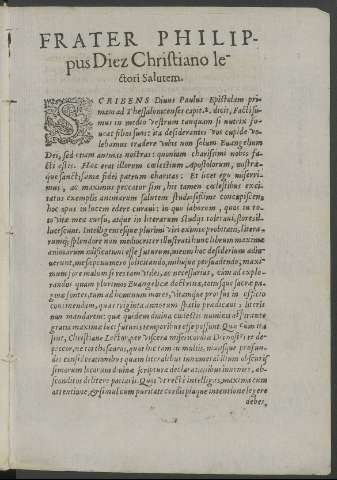 FRATER PHILIP-
pus Diez Christiano le-
ctori Salutem.
SCRIBENS Diuus Paulus Epistolam pri-
mam ad Thessalonicenses capit. 2. dicit, Facti su-
mus in medio vestrum tanquam si nutrix fo-
ueat filios suos: ita desiderantes vos cupide vo-
lebamus tradere vobis non solum Euangelium
Dei, sed etiam animas nostras: quoniam charissimi nobis fa-
cti estis. Hæc erat illorum cœlestium Apostolorum, nostræ-
que sanctissimæ fidei patrum charitas: Et licet ego miserri-
mus, ac maximus peccator sim, his tamen cœlestibus exci-
tatus exemplis animarum salutem studiosissimè concupiscens,
hoc opus in lucem edere curaui: in quo laborem, quo in to-
to vitæ meæ cursu, atque in literarum studijs toleraui,
lucescunt. Intelligens itaque plurimi viri eximiæ probitatis, litera-
rumq; splendore non mediocriter illustrati hunc librum maximæ
animarum vtilitati esse futurum, meum hoc desiderium adiu-
uerunt, me sæpenumero solicitando, mihique persuadendo, maxi-
mum fore
quam plurimos Euangelicæ doctrinæ, totiusque sacræ pa-
ginæ fontes, tum ad communes mores, vitamque prorsus in officio
continendam, quæ
non mandarem: quæ quidem diuina cœlestis numinis aspirante
gratia maximæ luci futuris temporibus esse possunt. Quo circa
Christiane Lector, per viscera misericordiæ Dei nostri te de-
posco, ne torcheseas, quæ hic tam in multis, manisque profun-
dis considerationibus quam literalibus innumerabilium obscuris-
simorum locorum diuinæ scripturæ declarationibus inuenies, ab-
sconditas delitere patiaris. Quas vt rectè intelligas, maxima cum
attentione, & simul cum puritate cordis piaque intentione legere
debes,